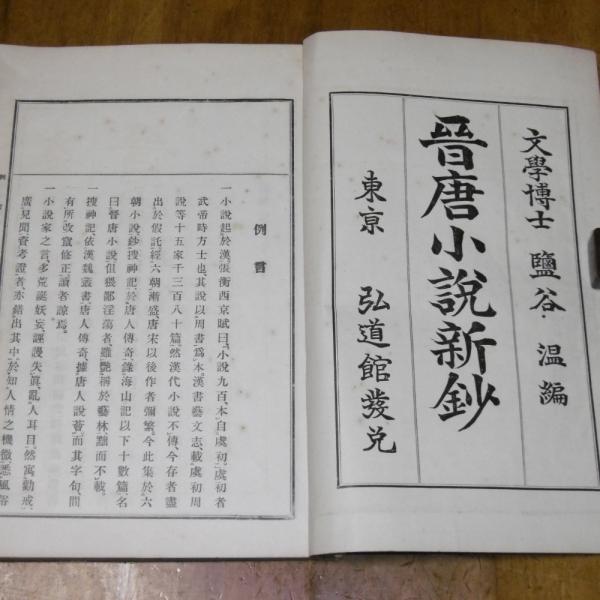 文學博士 鹽谷 溫編
晉唐小說新鈔
東京 弘道館發兌
例言
一小說起於漢、張衡西京賦曰、小說九百、本自虞初、虞初者
武帝時方士也、其說以周書爲本、漢書藝文志、載虞初周
說等十五家千三百八十篇、然漢代小說不傳、今存者盡
出於假託、經六朝漸盛、唐宋以後作者彌繁、今此集於六
朝小說、鈔搜神記、於唐人傳奇、錄海山記以下十數篇、名
曰晉唐小說、但猥鄙淫蕩者、雖艷稱於藝林、黜而不載。
一搜神記依漢魏叢書、唐人傳奇、據唐人說薈、而其字句、間
有所改竄修正、讀者諒焉。
一小說家之言、多荒誕妖妄、誣謾失眞、亂人耳目、然寓勸戒、
廣見聞、資考證者、亦錯出其中、於知人情之機微、悉風俗